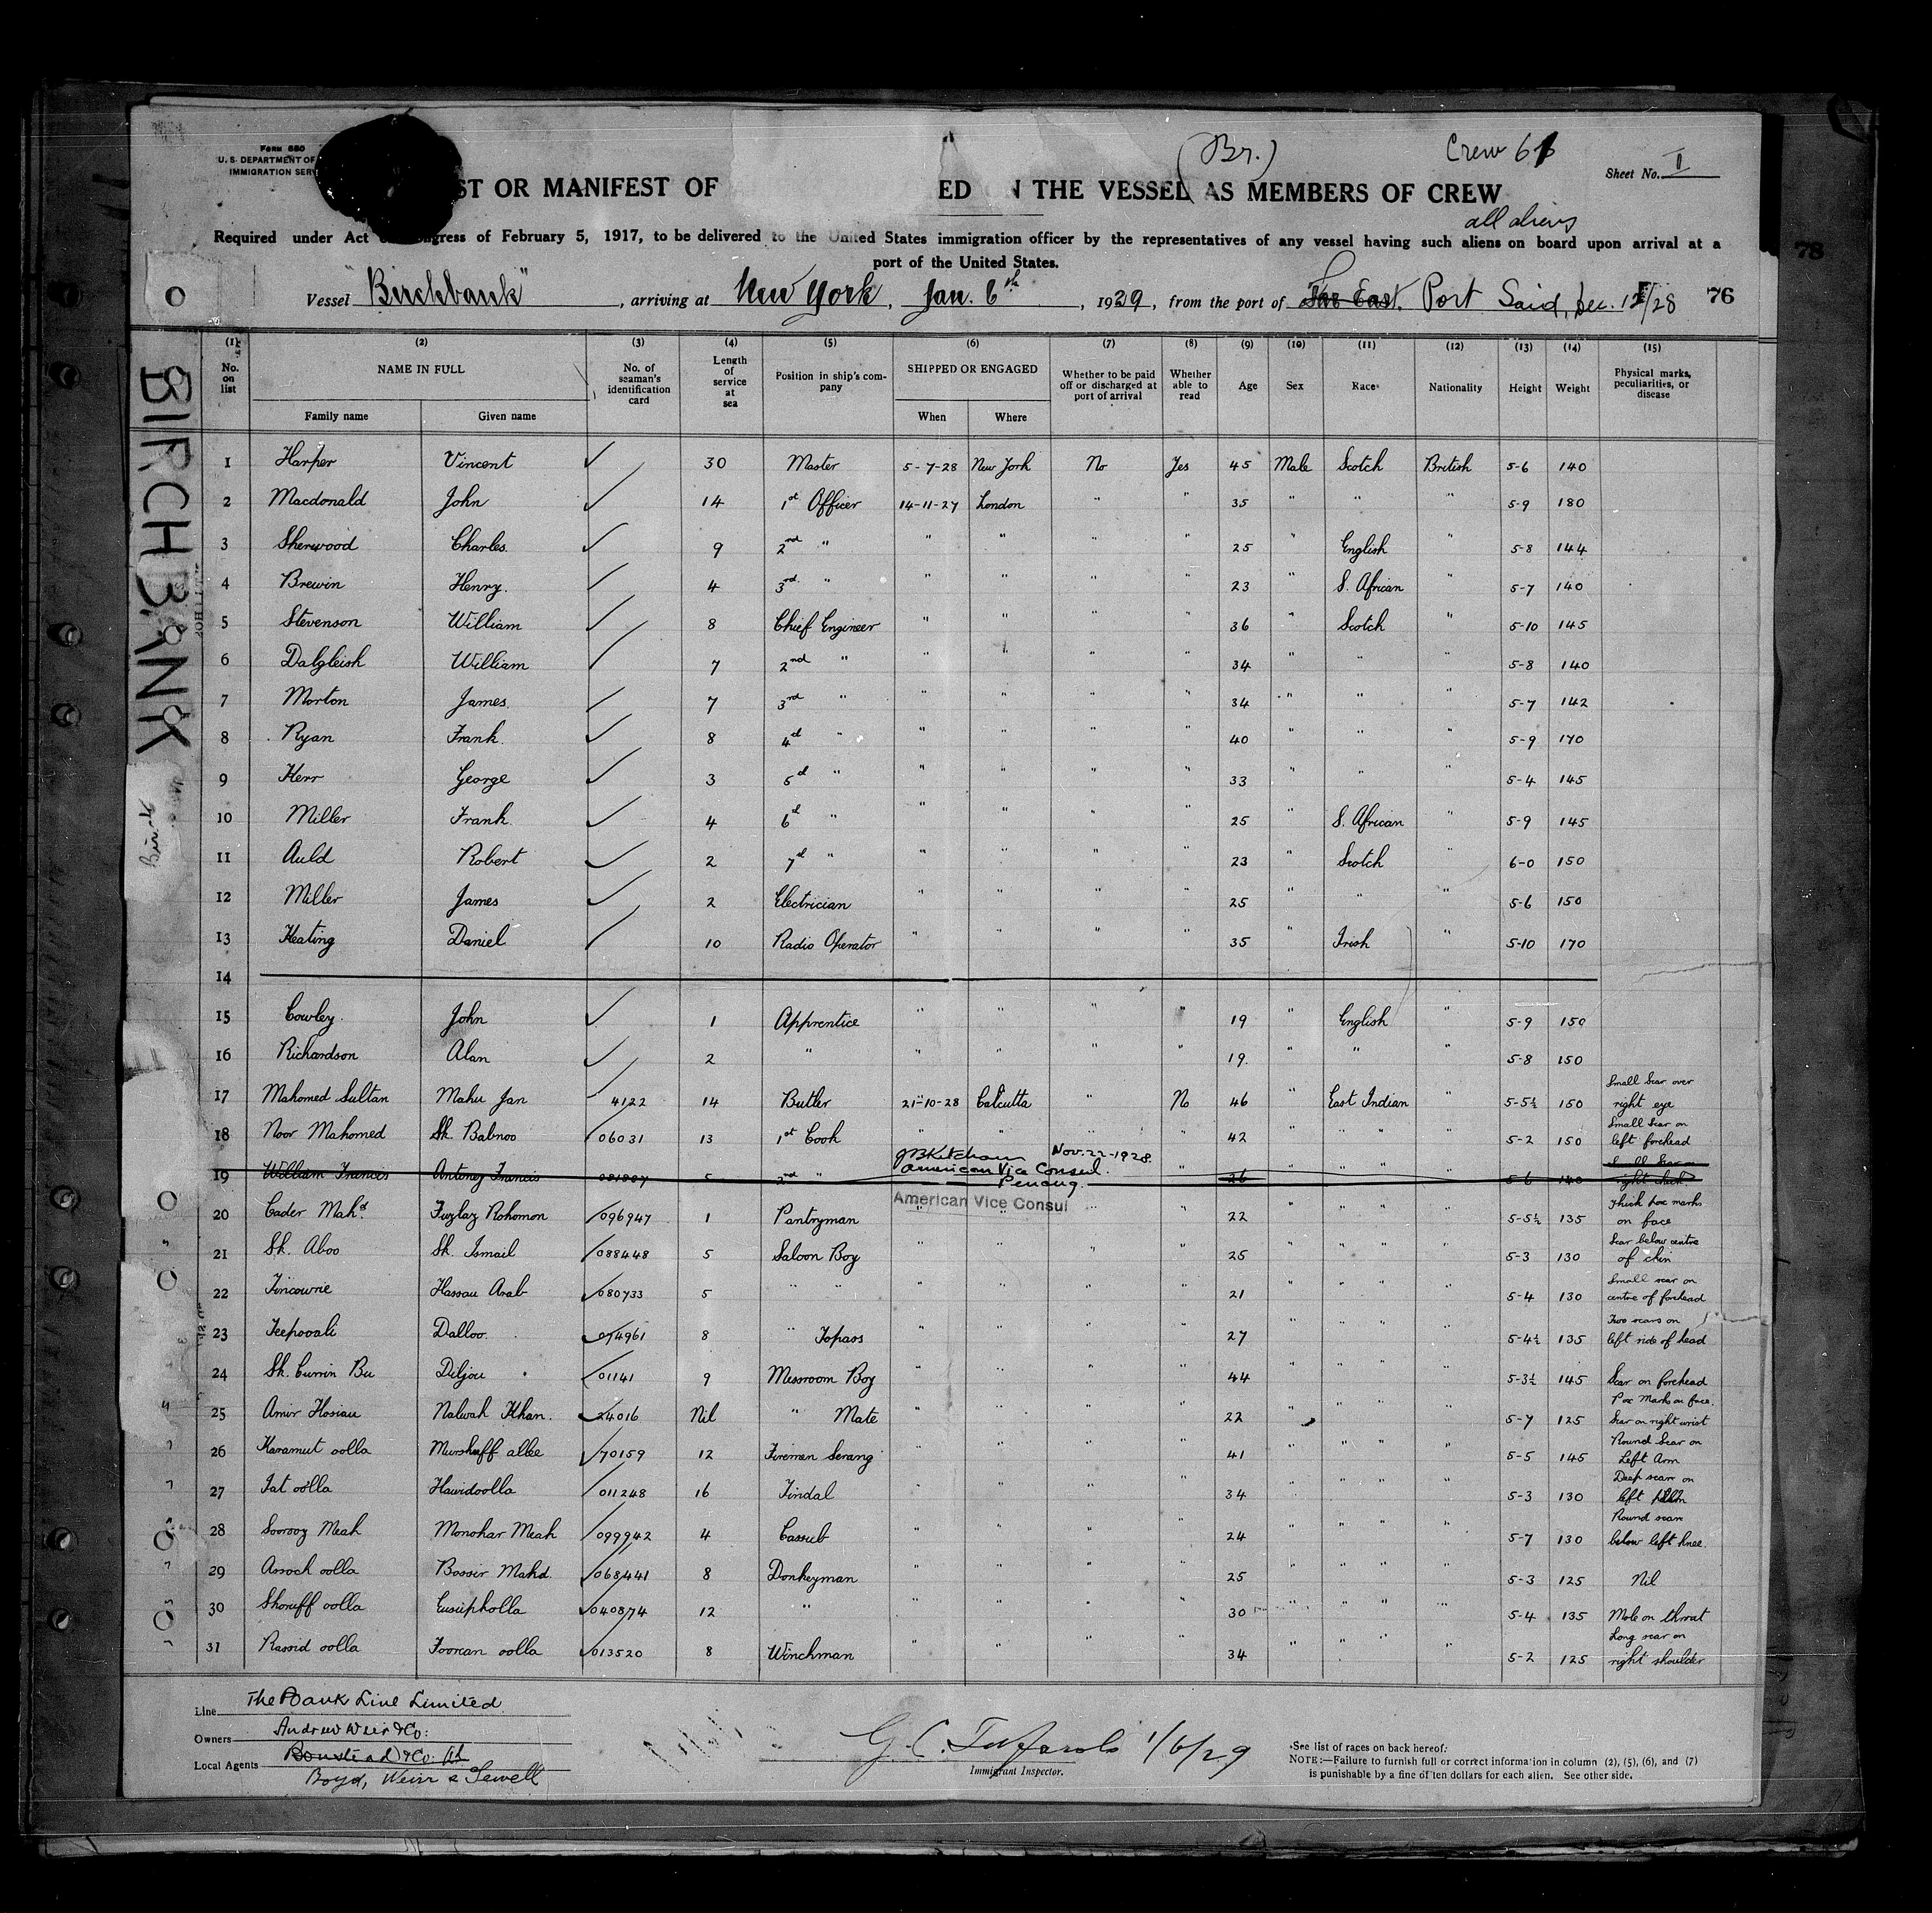 (Br.) Crew 61
Form 680
U. S. DEPARTMENT OF
IMMIGRATION SERV
Sheet No. I
ST OR MANIFEST OF ED N THE VESSEL AS MEMBERS OF CREW
all aliens
Required under Act of Congress of February 5, 1917, to be delivered to the United States immigration officer by the representatives of any vessel having such aliens on board upon arrival at a
port of the United States.
78
Vessel "Birchbank", arriving at New York, Jan. 6th, 1929, from the port of Far East. Port Said, Dec. /28 76
BIRCHBANK
(1) (2) (3) (4) (5) (6) (7) (8) (9) (10) (11) (12) (13) (14) (15)
No. on list NAME IN FULL No. of seaman's identification card Length of service at sea Position in ship's company SHIPPED OR ENGAGED Whether to be paid off or discharged at port of arrival Whether able to read Age Sex Race* Nationality Height Weight Physical marks, peculiarities, or disease
Family name Given name When Where
1 Harper Vincent 30 Master 5-7-28 New York No Yes 45 Male Scotch British 5-6 140
2 Macdonald John 14 1st Officer 14-11-27 London " " 35 " " " 5-9 180
3 Sherwood Charles. 9 2nd " " " " " 25 " English " 5-8 144
4 Brewin Henry. 4 3rd. " " " " " 23 " S. African " 5-7 140
5 Stevenson William 8 Chief Engineer " " " " 36 " Scotch " 5-10 145
6 Dalgleish William 7 2nd " " " " " 34 " " " 5-8 140
7 Morton James. 7 3rd " " " " " 34 " " " 5-7 142
8 Ryan Frank. 8 4d " " " " " 40 " " " 5-9 170
9 Kerr George 3 5d " " " " " 33 " " " 5-4 145
10 Miller Frank. 4 6d " " " " " 25 " S. African " 5-9 145
11 Auld Robert 2 7d " " " " " 23 " Scotch " 6-0 150
12 Miller James 2 Electrician " " " " 25 " " " 5-6 150
13 Keating Daniel 10 Radio Operator " " " " 35 " Irish " 5-10 170
14
15 Cowley. John 1 Apprentice " " " " 19 " English " 5-9 150
16 Richardson Alan 2 " " " " " 19. " " " 5-8 150
17 Mahomed Sultan Mahu Jan 4122 14 Butler 21-10-28 Calcutta " No 46 " East Indian " 5-5½ 150 Small Scar over right eye
18 Noor Mahomed Sk. Babnoo 06031 13 1st Cook " " " " 42 " " " " 5-2 150 Small Scar on left forehead
JB Ketcham Nov. 22-1928.
American Vice Consul.
Penang.
19 William Francis Antony Francis 081887 5 2nd " " 26 " " " " 5-6 140 Small Scar on right cheek
American Vice Consul
20 Cader Mahd. Fuzlaz Rohomon 096947 1 Pantryman " " " " 22 " " " " 5-5½ 135 Thick pox marks on face
21 Sk. Aboo Sk. Ismail 088448 5 Saloon Boy " " " " 25 " " " " 5-3 130 Scar below centre of chin
22 Tincowrie Hassau Arab 080733 5 " " " " " " 21 " " " " 5-4 130 Small scar on centre of forehead
23 Teepooali Dalloo. 074961 8 " Topass " " " " 27 " " " " 5-4½ 135 Two scars on left side of head
24 Sk. Currin Bu Diljou 01141 9 Messroom Boy " " " " 44 " " " " 5-3½ 145 Scar on forehead
25 Amir Hosiau Nalwah Khan. 24016 Nil " Mate " " " " 22 " " " 5-7 125 Pox Marks on face. Scar on right wrist
26 Karamut oolla Murshuff allee 70159 12 Firemen Serang " " " " 41 " " " " 5-5 145 Round Scar on Left Arm
27 Jat oolla Hawidoolla 011248 16 Tindal " " " " 34 " " " " 5-3 130 Deep scar on left
28 Soorooz Meah Monohar Meah 099942 4 Cassub " " " " 24 " " " " 5-7 130 Round scar below left knee.
29 Assoch oolla Bossir Mahd. 068441 8 Donkeyman " " " " 25 " " " " 5-3 125 Nil
30 Shoruff oolla Eusuipholla 040874 12 " " " " " 30 " " " " 5-4 135 Mole on throat
31 Rassid oolla Foorcan oolla 013520 8 Winchman " " " " 34 " " " " 5-2 125 Long scar on right shoulder
Line The Bank Line Limited
Owners Andrew Weir & Co:
Local Agents Boustead & Co: Ld
Boyd, Weir & Sewell
1/6/29
Immigrant Inspector.
*See list of races on back hereof.
NOTE:—Failure to furnish full or correct information in column (2), (5), (6), and (7)
is punishable by a fine of ten dollars for each alien. See other side.